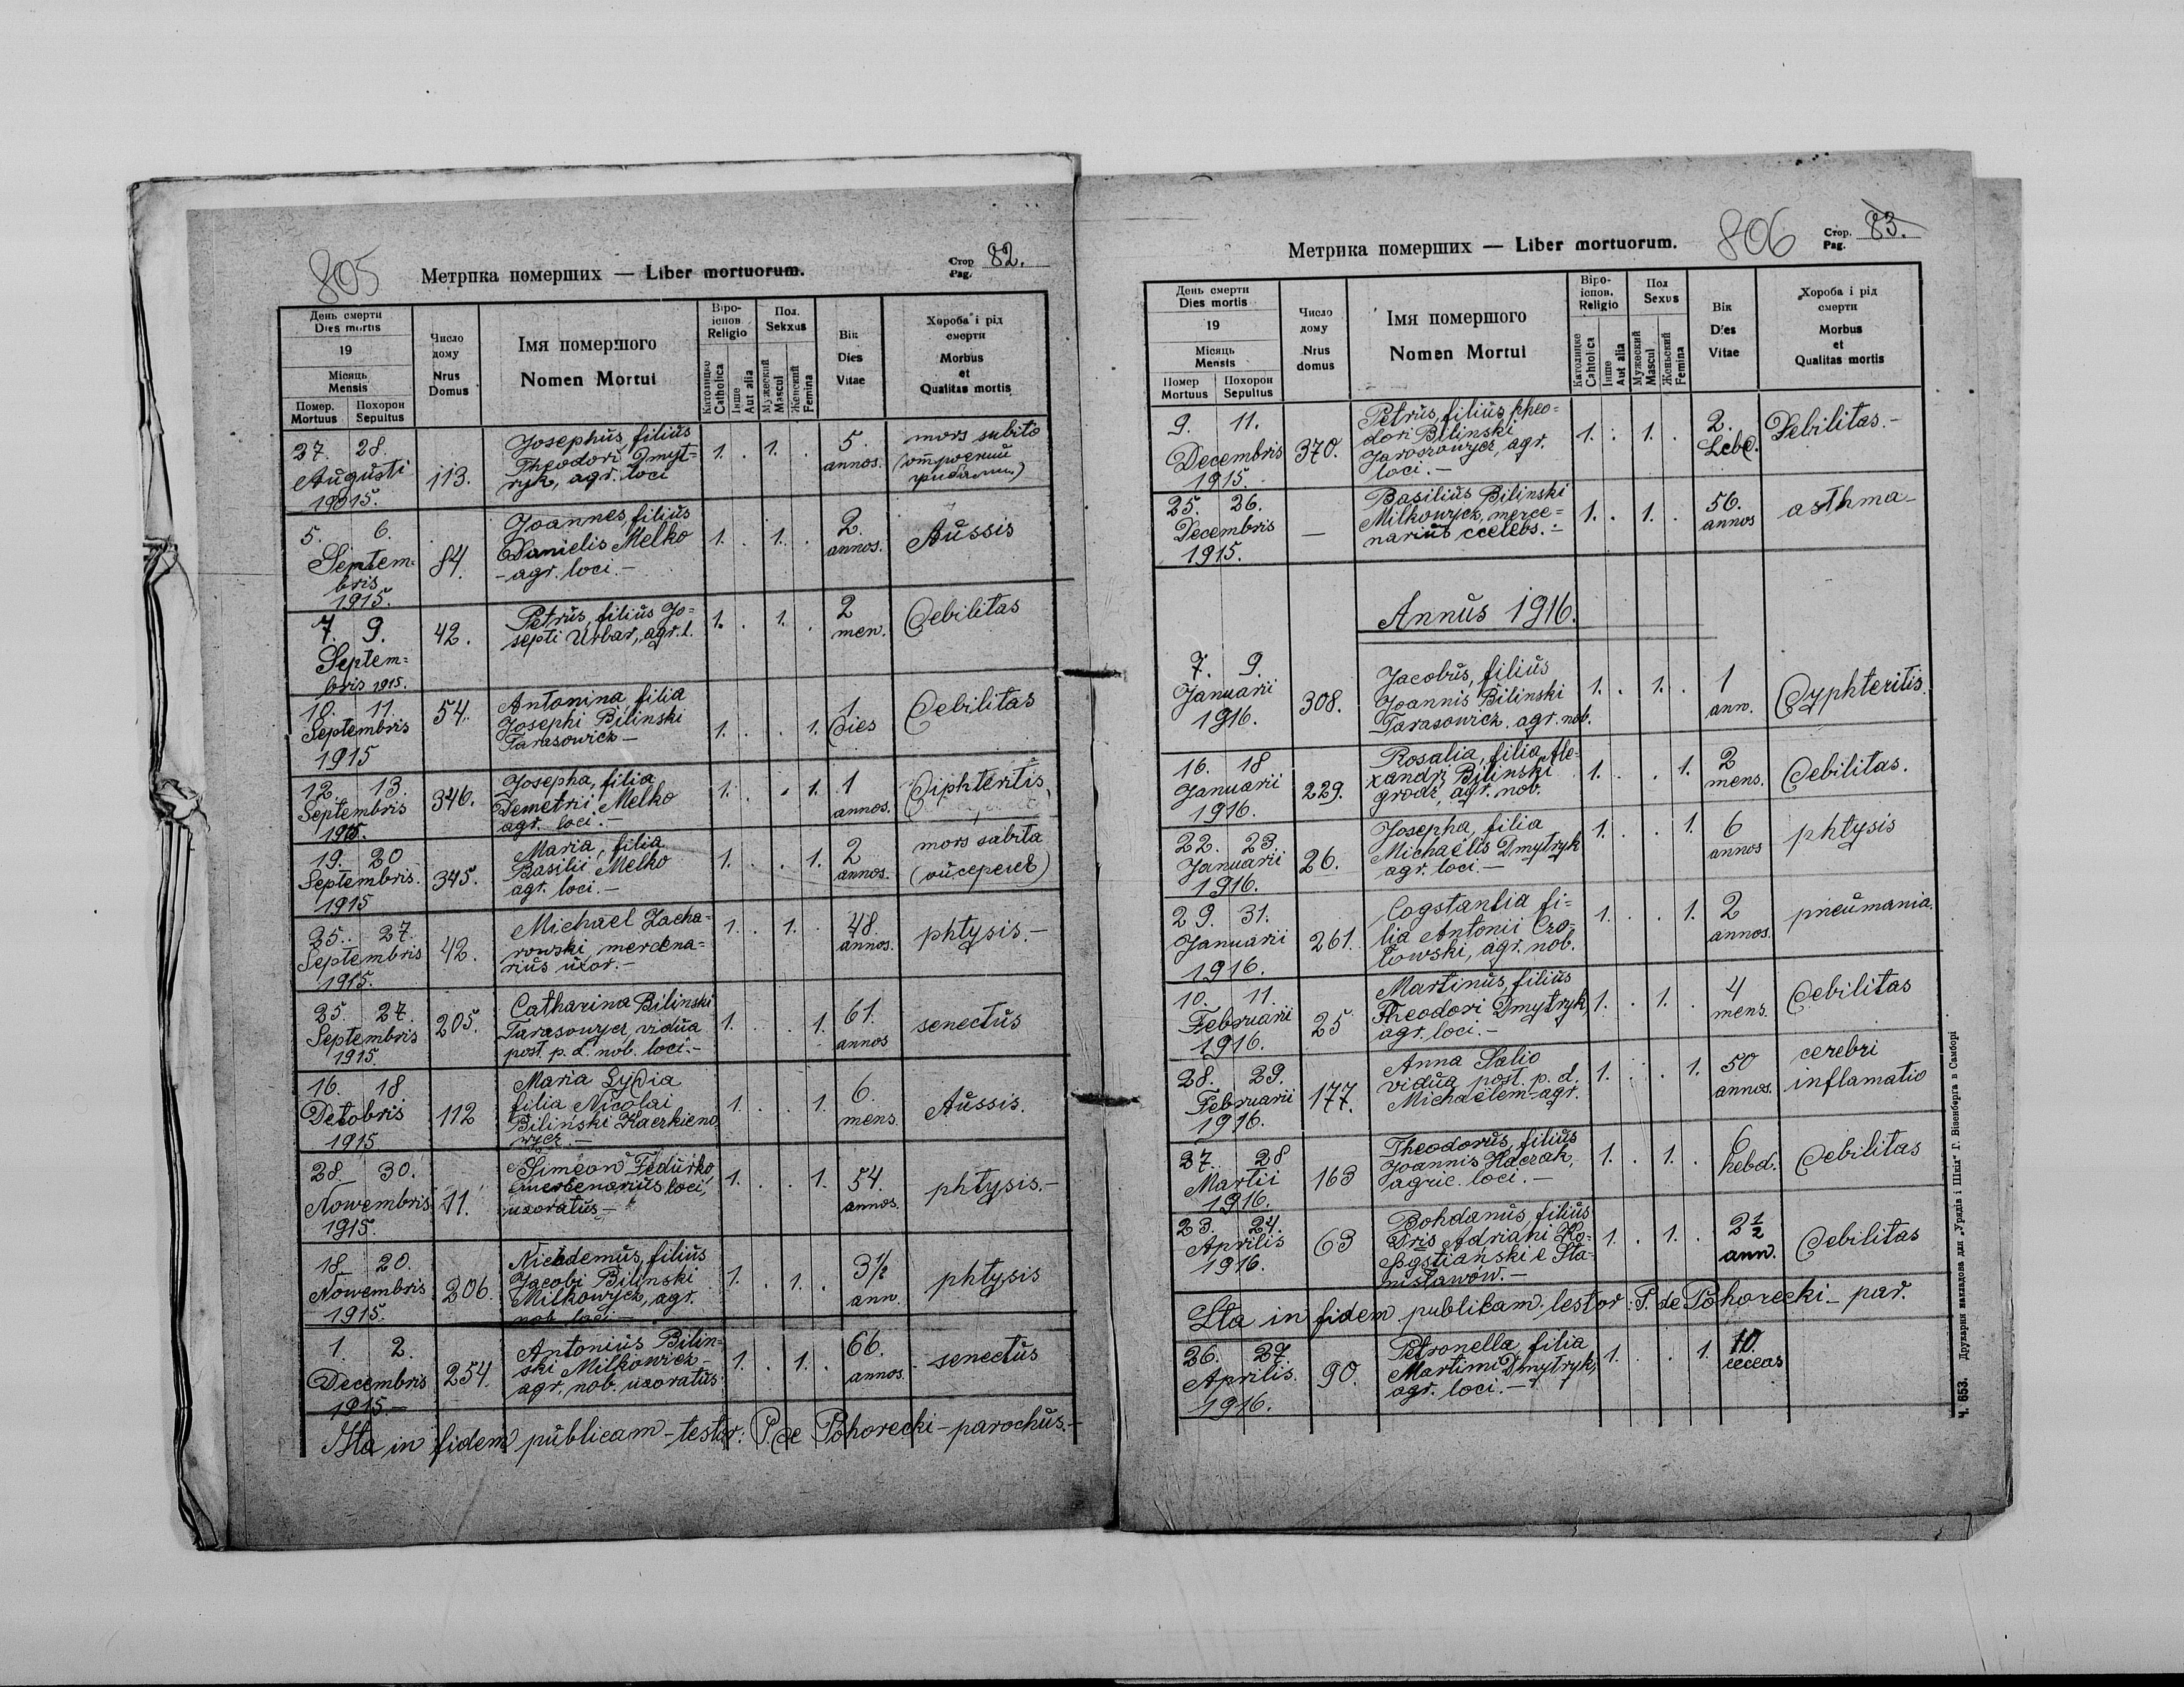 805
Метрика померших — Liber mortuorum.
Стор Pag. 82.
День смерти
Dies mortis
19
Місяць
Mensis
Помер. Похорон
Mortuus Sepultus
Число
дому
Nrus
Domus
Імя помершого
Nomen Mortui
Віро-
іспов
Religio
Католицке
Catholica
Інше
Aut alia
Пол.
Sekxus
Мужеский
Mascul
Женский
Femina
Вік
Dies
Vitae
Хороба і рід
смерти
Morbus
et
Qualitas mortis
27. 28.
Augusti
1915.
113.
Josephus, filius
Theodori Dmyt-
ryk, agr. loci
1. . 1. .
5.
annos.
mors subito
(отроєний
грибами.)
5. 6.
Septem-
bris
1915.
84.
Joannes, filius
Danielis Melko
- agr. loci. -
1. . 1. .
2.
annos.
Aussis
7. 9.
Septem=
bris 1915.
42.
Petrus, filius Jo=
septi Urbar, agr. l.
1. . 1. .
2
men.
Debilitas
10. 11.
Septembris
1915
54.
Antonina, filia
Josephi Bilinski
Tarasowicz -
1. . . 1.
1.
Dies
Debilitas
12. 13.
Septembris
1915.
346.
Josepha, filia
Demetrii Melko
agr. loci. -
1. . . 1.
1
annos.
Diphteritis
19. 20
Septembris.
1915
345.
Maria, filia
Basilii Melko
agr. loci. -
1. . . 1.
2
annos.
mors sabita
25. 27.
Septembris
1915.
42.
Michael Zacha-
rowski, mercena=
rius uxor. -
1. . 1. .
48.
annos.
phtysis. -
25. 27.
Septembris
1915.
205.
Catharina Bilinski
Tarasowycz, vidua
post. p. d. nob. loci. -
1. . . 1.
61.
annos
senectus
16. 18.
Octobris
1915
112
Maria Lydia
filia Nicolai
Bilinski Kaczkieno
wycz. -
1. . . 1.
6.
mens.
Aussis.
28. 30.
Nowembris
1915.
11.
Simeon Fedurko
mercenarius loci,
uxoratus -
1. . . 1.
54.
annos.
phtysis. -
18. 20.
Nowembris
1915.
206.
Nicodemus, filius
Jacobi Bilinski
Milkowycz, agr.
nob. loci. -
1. . 1. .
3½
ann.
phtysis
1. 2.
Decembris
1915. -
254.
Antonius Bilin-
ski Milkowicz -
agr. nob. uxoratus
1. . 1. .
66.
annos.
senectus
Ita in fidem publicam - testor: P. de Pohorecki - parochus. -
Метрика померших — Liber mortuorum.
806
Стор. Pag. 83.
День смерти
Dies mortis
19
Місяць
Mensis
Помер Похорон
Mortuus Sepultus
Число
дому
Nrus
domus
Імя помершого
Nomen Mortui
Віро-
іспов.
Religio
Католицке
Cahtolica
Інше
Aut alia
Пол
Sexus
Мужеский
Mascul
Женьский
Femina
Вік
Dies
Vitae
Хороба і рід
смерти
Morbus
et
Qualitas mortis
9. 11.
Decembris
1915.
370.
Petrus, filius pheo=
dori Bilinski
Jaroszowycz, agr.
loci. -
1. . 1. .
2.
Debilitas. -
25. 26.
Decembris
1915.
—
Basilius Bilinski
Milkowycz, merce=
narius coelebs. -
1. . 1. .
56.
annos
asthma -
Annus 1916.
7. 9.
Januarii
1916.
308.
Jacobus, filius
Joannis Bilinski
Tarasowicz, agr. nob.
1. . 1. .
1
ann.
Dyphteritis.
16. 18
Januarii
1916.
229.
Rosalia, filia Ale-
xandri Bilinski
grodz, agr. nob.
1. . . 1.
2
mens.
Debilitas.
22. 23
Januarii
1916.
26.
Josepha, filia
Michaelis Dmytryk
agr. loci. -
1. . . 1.
6
annos
phtysis
29. 31.
Januarii
1916.
261.
Cogstantia fi-
lia Antonii Czo-
lowski, agr. nob.
1. . . 1.
2
annos.
pneumania.
10. 11.
Februarii
1916.
25
Martinus, filius
Theodori Dmytryk,
agr. loci. -
1. . 1. .
4
mens.
Debilitas
28. 29.
Februarii
1916.
177.
Anna Salio
vidua post. p. d.
Michaelem - agr.
1. . . 1.
50
annos.
cerebri
inflamatio
27. 28
Martii
1916.
163
Theodorus, filius
Joannis Haczak,
agric. loci. -
1. . 1. .
6
hebd.
Debilitas
23. 24.
Aprilis
1916.
63
Bohdanus, filius
Dris Adriani Ko-
e Sta-
nislawow. -
1. . 1. .
2½
ann.
Debilitas
Ita in fidem publicam testor: P. de Pohorecki - par.
26. 27
Aprilis.
1916.
90.
Petronella, filia
Martini Dmytryk,
agr. loci. -
1. . . 1.
10.
Ч. 653. Друкарня накладова для „Урядів і Шкіл" Г. Візенберга в Самборі